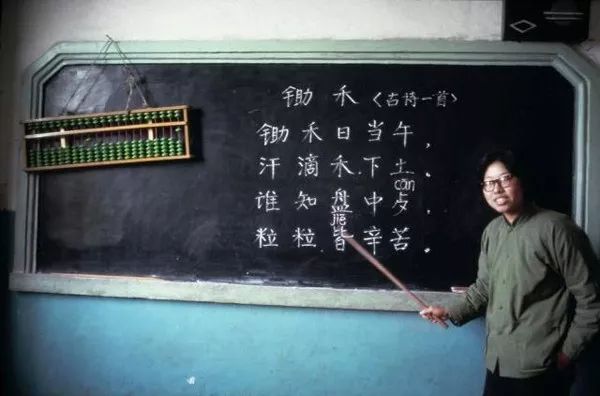 锄禾〈古诗一首〉
锄禾日当午，
汗滴禾下土
cān
谁知盘中歺，
jiē
粒粒皆辛苦。